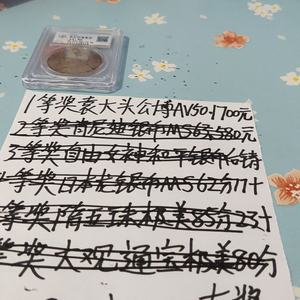 1等奖袁大头公博AV50十700元
2等奖肯尼迪银币MS63580元
3等奖自由女神和平银币
等奖日本龙银币MS62分
等奖隋五铢极美85分23十
等奖大观通宝极美80分